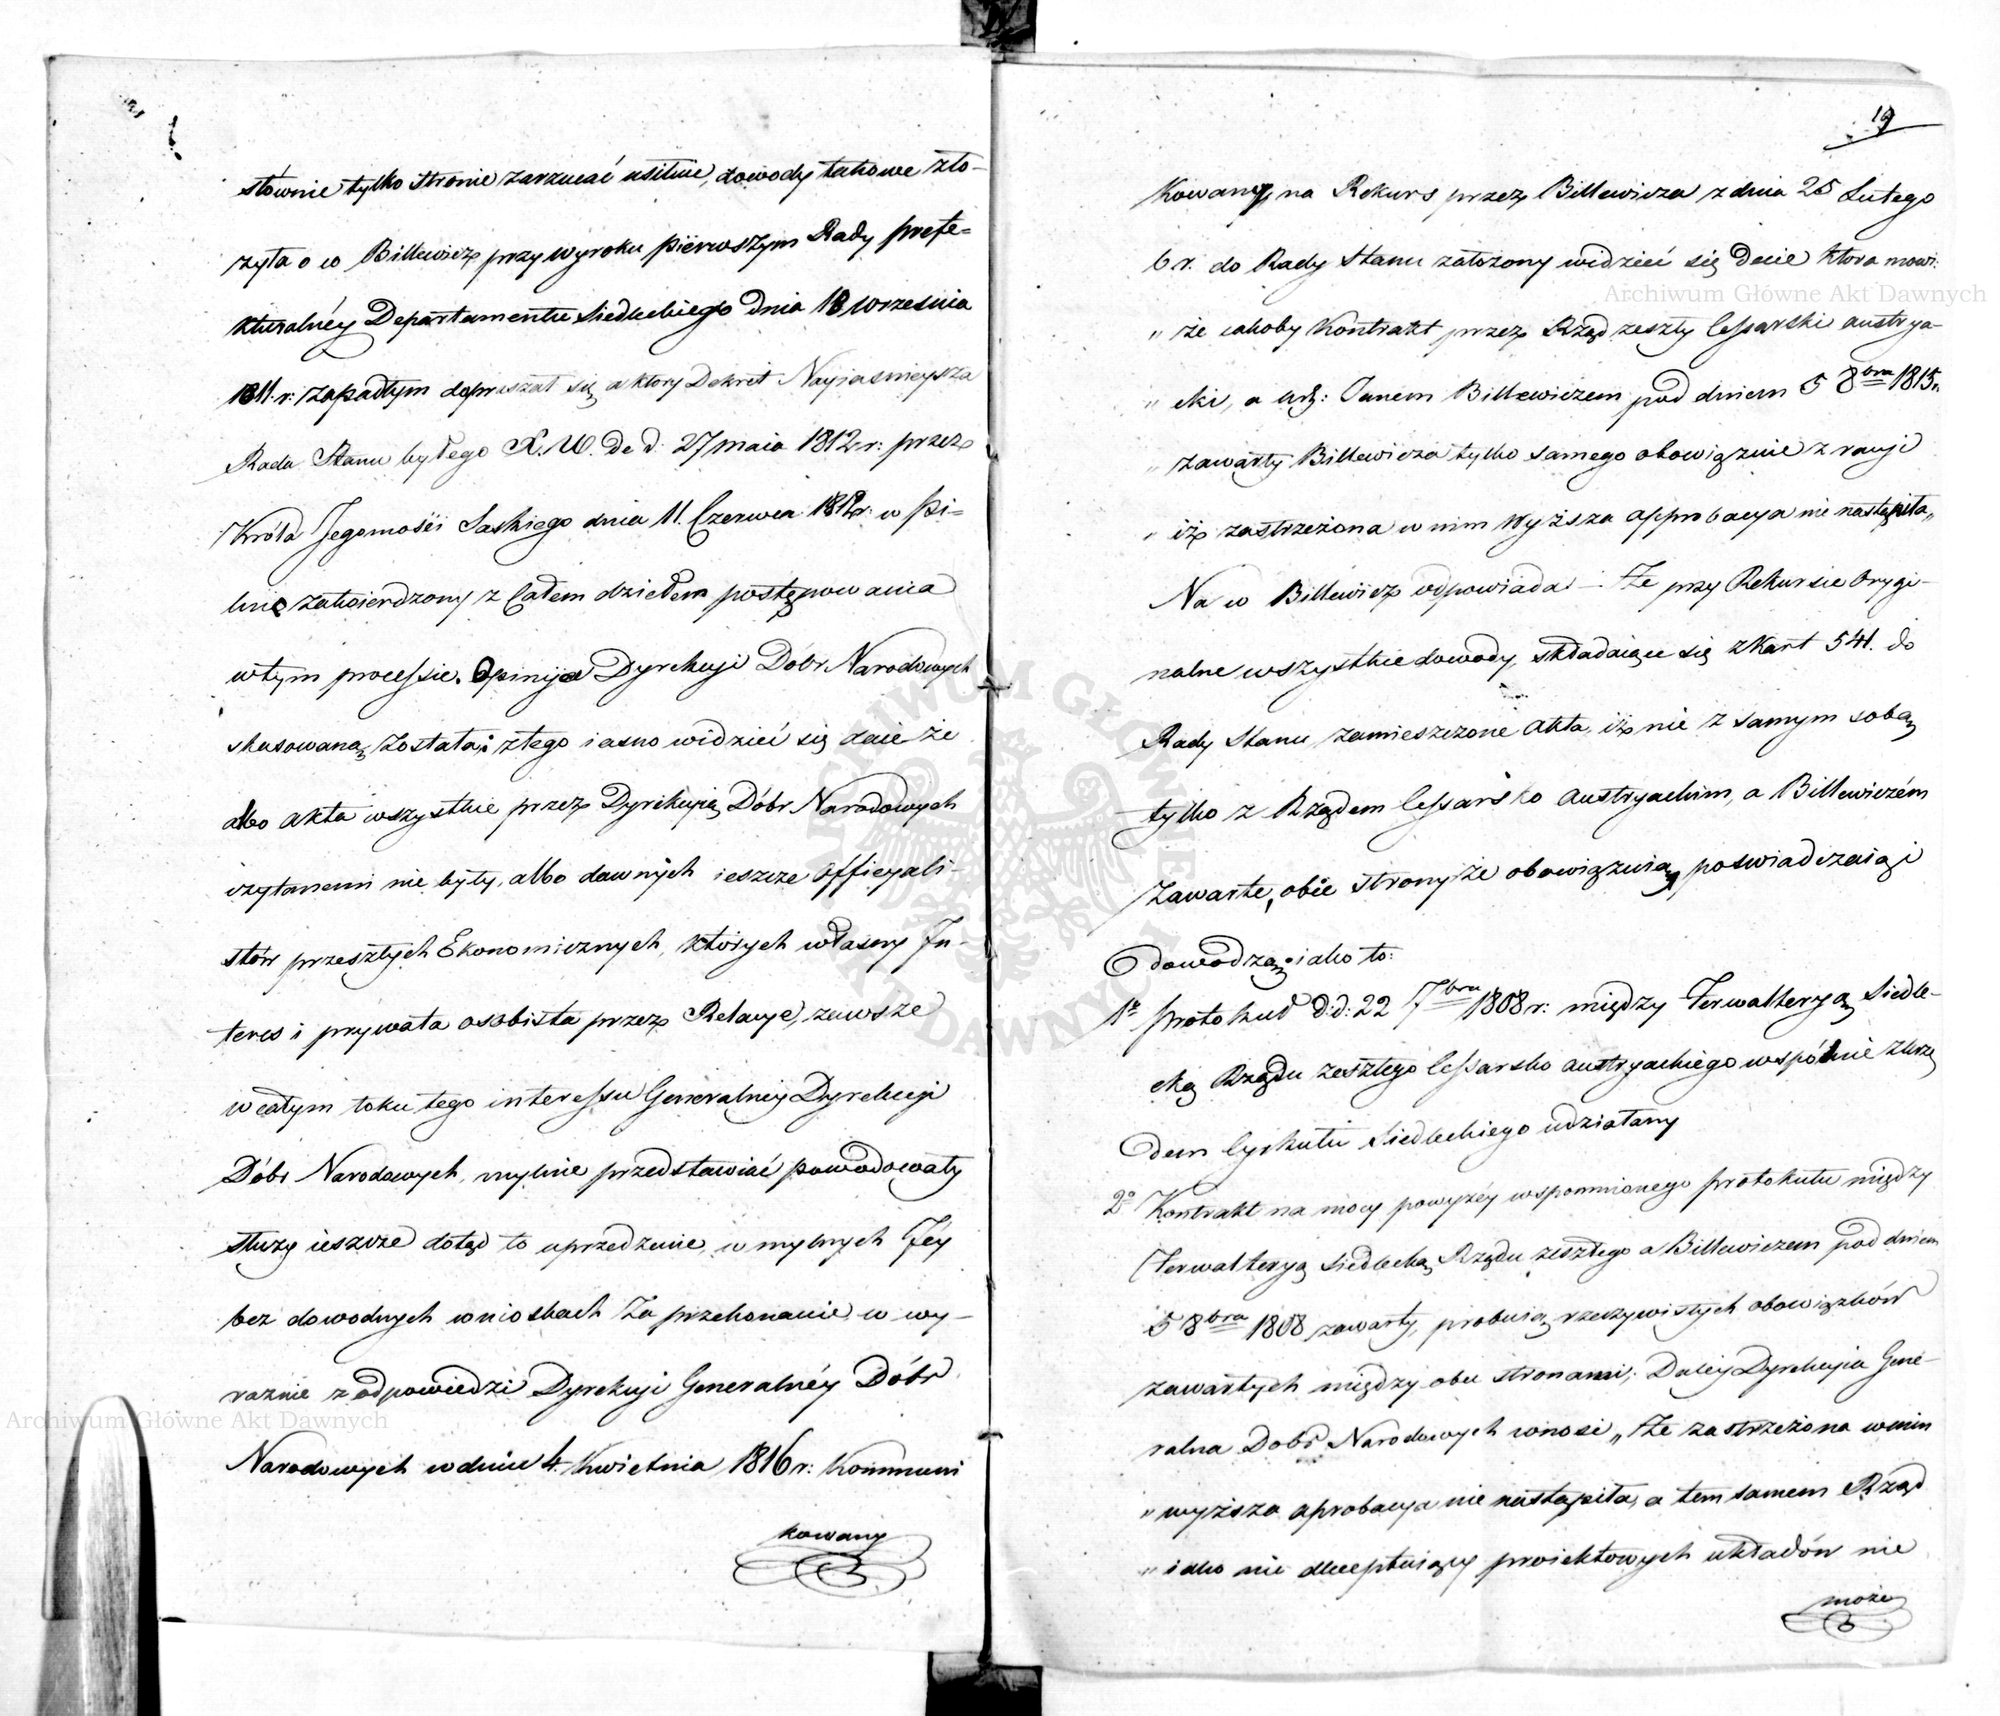 słownie tylko stronie zarzucać usilnie, dowody takowe zło-
żyła o w Billewicz przy wyroku pierwszym Rady prefe-
kturalnéy Departamentu Siedleckiego dnia 18 września
1811. r: zapadłym dopraszał się, a ktory Dekret Nayiasnieysza
Rada Stanu byłego X. W. de d. 27 maia 1812 r: przez
Króla Jegomości Saskiego dnia 11. Czerwca 1812 r: w Pi-
lnie zatwierdzony z Całem dziełem postępowania
w tym processie. Opinija Dyrekcyi Dóbr Narodowych
skasowaną została, z tego iasno widzieć się daie że
albo akta wszystkie przez Dyrekcyią Dóbr Narodowych
czytanemi nie były, albo dawnych ieszcze officyali-
stów przeszłych Ekonomicznych, których własny In-
teres i prywata osobista przez Relacye, zawsze
w całym toku tego interessu Generalnéy Dyrekcyi
Dóbr Narodowych, mylnie przedstawiać powodowały
służy ieszcze dotąd to uprzedzenie, w mylnych Jéy
bez dowodnych wnioskach za przekonanie, w wy-
raznie z odpowiedzi Dyrekcyi Generalnéy Dóbr
Narodowych w dniu 4. Kwietnia 1816 r: Kommuni
kowany
19
Kowany, na Rekurs przez Billewicza z dnia 25 Lutego
b r. do Rady Stanu założony widzieć się daie ktora mowi:
„ że iakoby Kontrakt przez Rząd zeszły Cessarski austrya-
„ cki, a urz: Janem Billewiczem pod dniem 5 8bra 1815.
„ zawarty Billewicza tylko samego obowiązuie z racyi
„ iż zastrzeżona w nim wyższa approbacya nie nastąpiła„
Na w Billewicz odpowiada – że przy Rekursie Orygi-
nalne wszystkie dowody, składaiące się z kart 541. do
Rady Stanu zamieszczone Akta, iż nie z samym sobą
tylko z Rządem Cessarsko Austryackim, a Billewiczém
zawarte, obie strony że obowiązuią, poswiadczaią i
dowodzą, iako to:
1o protokuł d: d: 22 7bra 1808 r: między Ferwalteryą Siedle-
cką Rządu zeszłego Cessarsko austryackiego wspólnie z Urzę
dem Cyrkułu Siedleckiego udziałany
2o Kontrakt na mocy powyżéy wspomnionego protokułu między
Ferwalteryą Siedlecką Rządu zeszłego a Billewiczem pod dniem
5 8bra 1808 zawarty, probuią rzeczywistych obowiązków
zawartych między obu stronami, Daléy Dyrekcyia Gene-
ralna Dobr Narodowych wnosi „że zastrzeżona w nim
„ wyższa aprobacya nie nastąpiła, a tem samem Rząd
„ iako nie akceptuiący proiektowych układów nie
może
Archiwum Główne Akt Dawnych
Archiwum Główne Akt Dawnych
ARCHIWUM GŁÓWNE AKT DAWNYCH